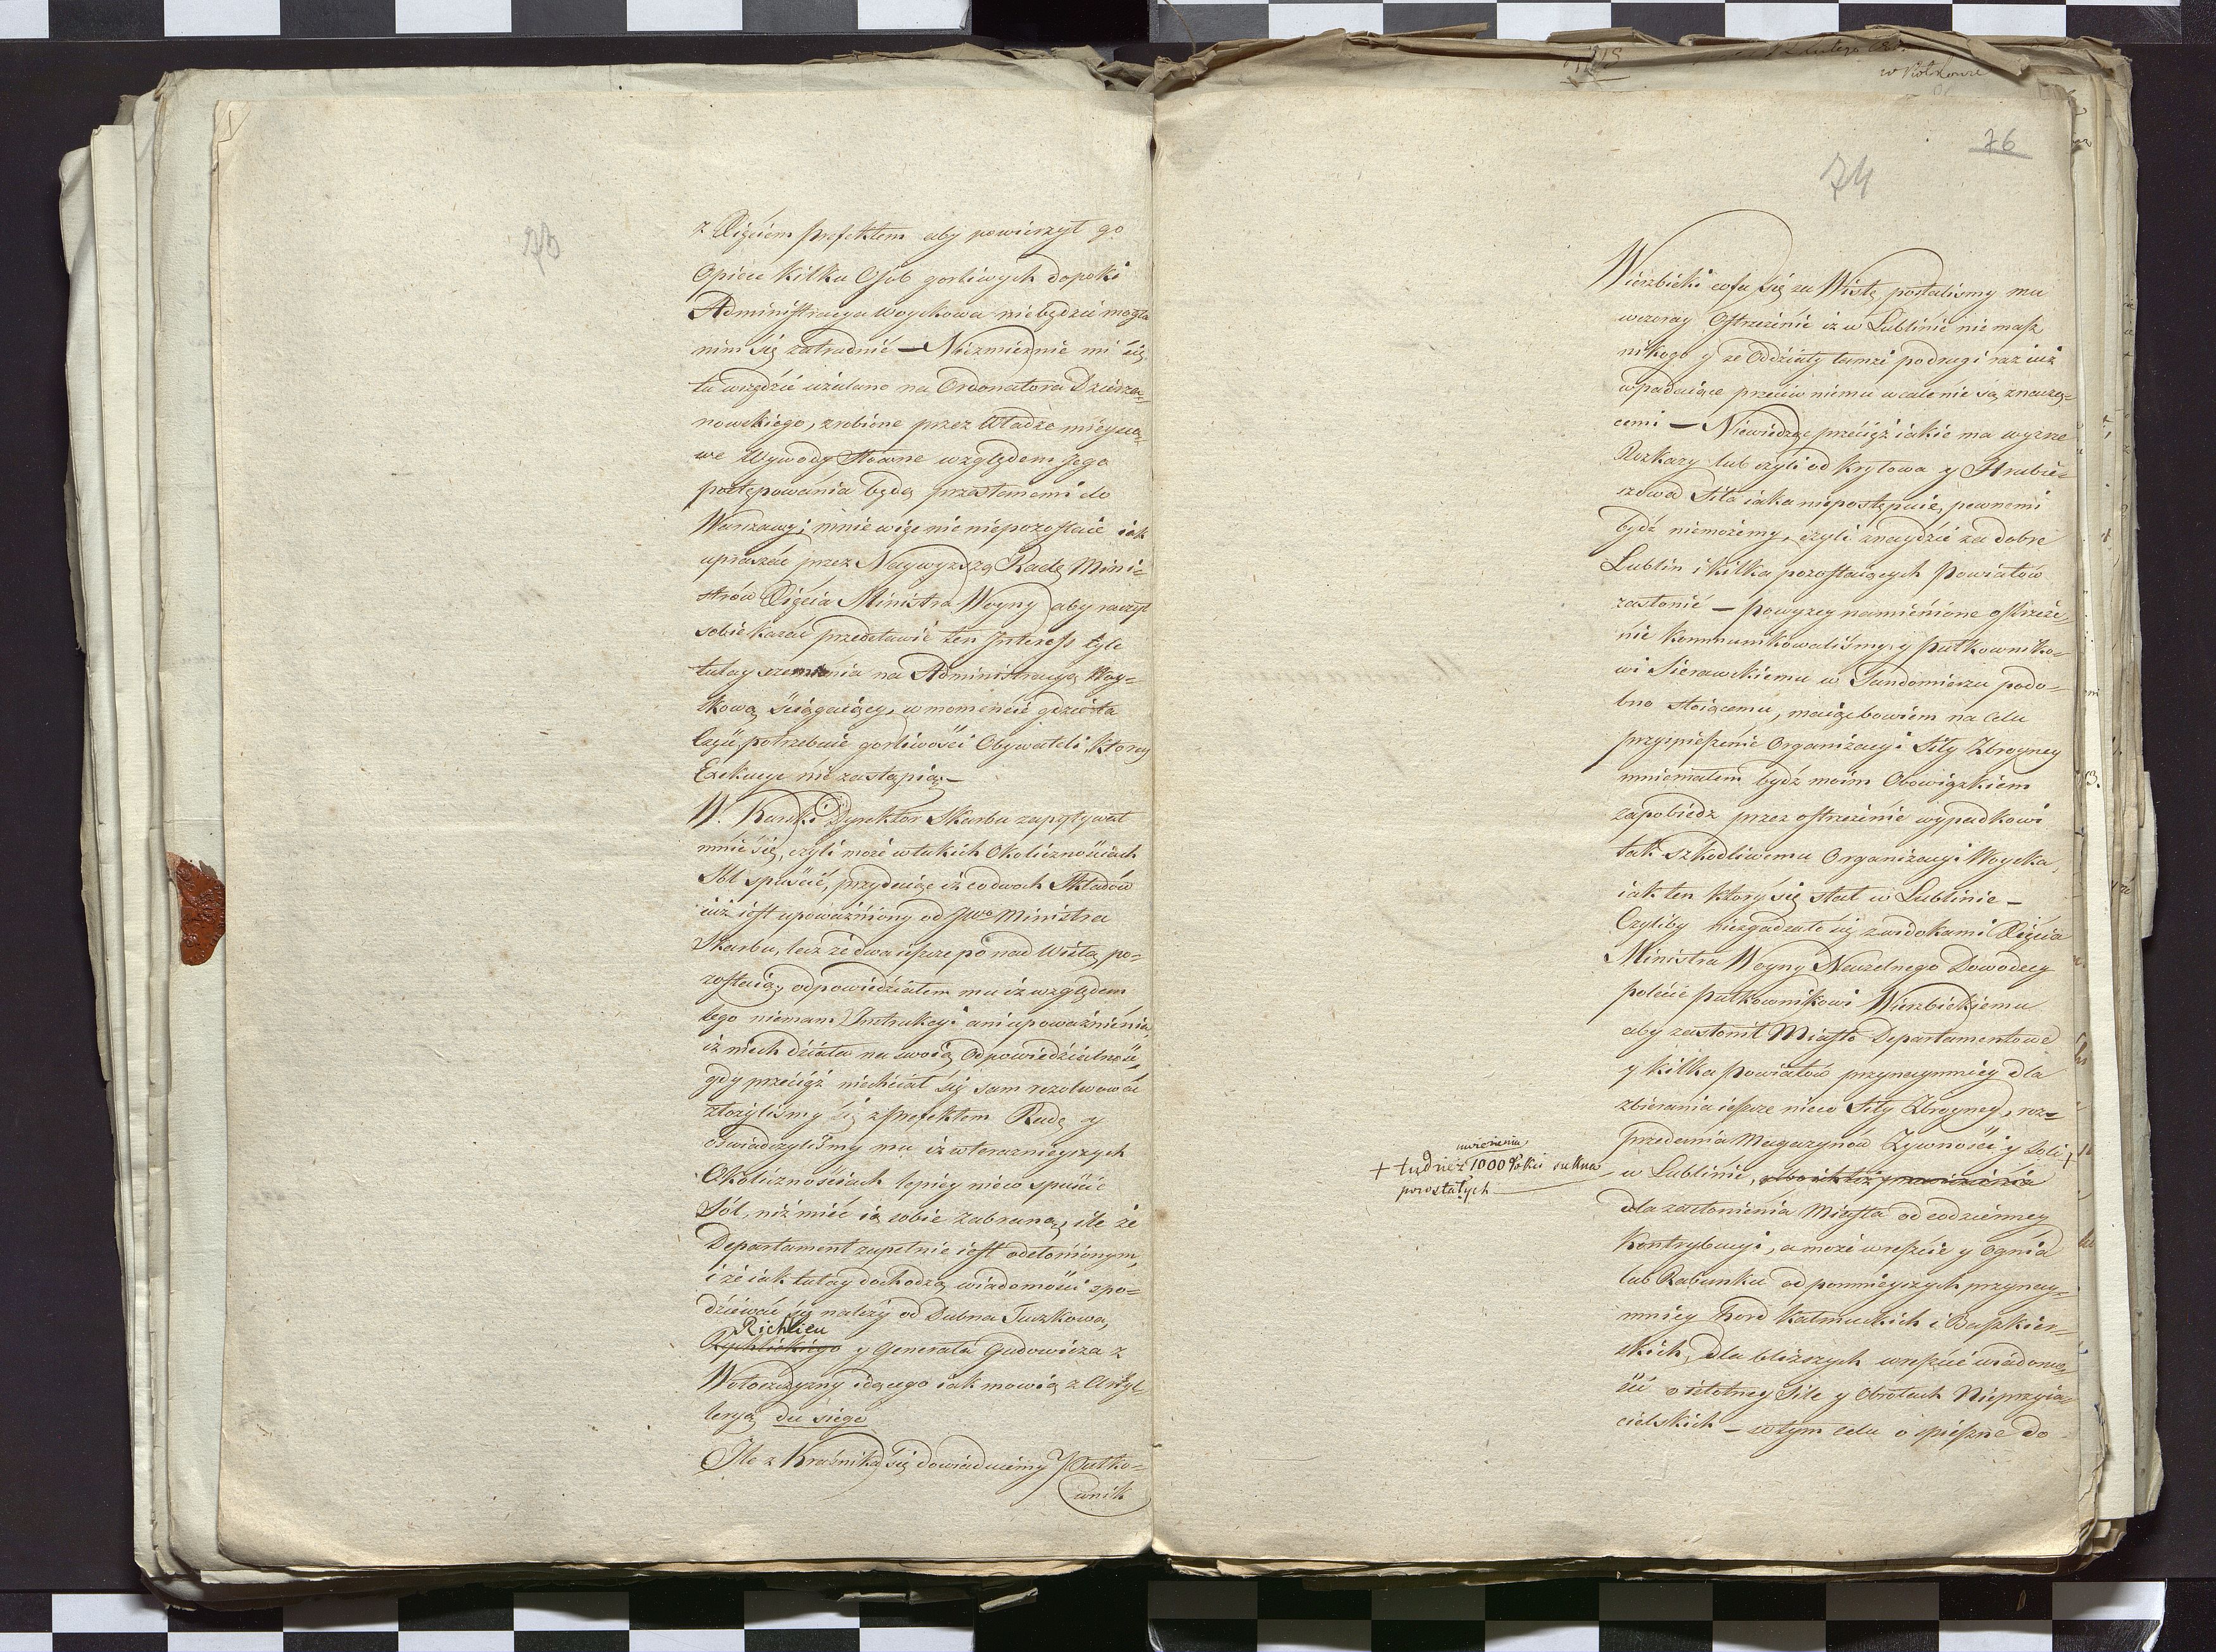 73
z Xięciem Prefektem aby powierzył go
Opiece kilku Osób gorliwych dopoki
Administracya woyskowa niebędzie mogła
nim się zatrudnić — Niezmiernie mi się
tu wszędzie użalano na Ordonatora Dzierza=
nowskiego, zrobione przez Władze mieysco=
we Wywody Słowne względem Jego
postępowania będą przesłanemi do
Warszawy; mnie więc nic niepozostaie iak
upraszać przez Naywyższą Radę Mini=
strów Xięcia Ministra Woyny aby raczył
sobie kazać przedstawić ten Interess tyle
tutay szemrania na Administracyą Woy=
skową ściągaiący, w momencie gdzie ta
tyle potrzebuie gorliwości Obywateli, ktorey
Exekucye nie zastąpią. —
W. Kunicki Dyrektor Skarbu zapytywał
mnie się, czyli może w takich Okolicznościach
Sól spuścić, przydaiąc iż co dwóch Składów
iuż iest upoważniony od JWo Ministra
Skarbu, lecz że dwa ieszcze po nad Wisłą po=
zostaią, odpowiedziałem mu iż względem
tego niemam Instrukcyi ani upoważnienia,
iż niech działa na swoią Odpowiedzialność,
gdy przecięż niechciał się sam rezolwować
złożyliśmy się z Prefektem Radę y
oświadczyliśmy mu iż w terazniejszych
Okolicznościach lepiey nieco spuścić
Sól, niż mieć ią sobie Zabraną, ile że
Departament zupełnie iest odsłonionym,
i że iak tutay dochodzą wiadomości spo=
dziewać się należy od Dubna Tuczkowa,
Richlieu
Rychlickiego y Generała Gudowicza z
Wołoszczyzny idącego iak mowią z Artyl
leryą de siege
Ile z Kraśnika się dowiaduiemy Pułko=
wnik
76
74
Wierzbicki cofa się za Wisłę, posłaliśmy mu
wczoray Ostrzeżenie iż w Lublinie nie masz
nikogo y że Oddziały tamże po drugi raz iuż
wpadaiące przeciw niemu wcale nie są znaczą=
cemi — Niewiedząc przecięż iakie ma wyższe
Rozkazy lub czyli od Kryłowa y Hrubie=
szowa Siła iaka niepostępuie, pewnemi
bydź niemożemy, czyli znaydzie za dobre
Lublin i kilka pozostaiących Powiatów
zasłonić — powyżey namienione ostrzeże=
nie kommunikowaliśmy y Pułkowniko=
wi Sierawskiemu w Sandomierzu podo=
bno stoiącemu, maiąc bowiem na Celu
przyspieszenie Organizacyi Siły Zbroyney
mniemałem bydź moim Obowiązkiem
zapobiedz przez ostrzeżenie wypadkowi
tak szkodliwemu Organizacyi Woyska,
iak ten który się stał w Lublinie —
Czyliby niezgadzało się z widokami Xięcia
Ministra Woyny Naczelnego Dowodzcy
polecić Pułkownikowi Wierzbickiemu
aby zasłonił Miasto Departamentowe
y kilka Powiatów przynaymniey dla
zbierania ieszcze nieco Siły Zbroyney, roz=
przedania Magazynów Żywności y Soli +
w Lublinie, albo ich też przewiezienia
uwiezienia
+ tudzież 1000 łokci sukna
pozostałych
dla zasłonienia Miasta od codzienney
Kontrybucyi, a może wreszcie y Ognia
lub Rabunku od pomnieyszych przynay=
mniey hord Kałmuckich i Baszkier=
skich, dla bliższych wreszcie wiadomo=
ści o istotney Sile y Obrotach Nieprzyia=
cielskich — w tym celu o spieszne do